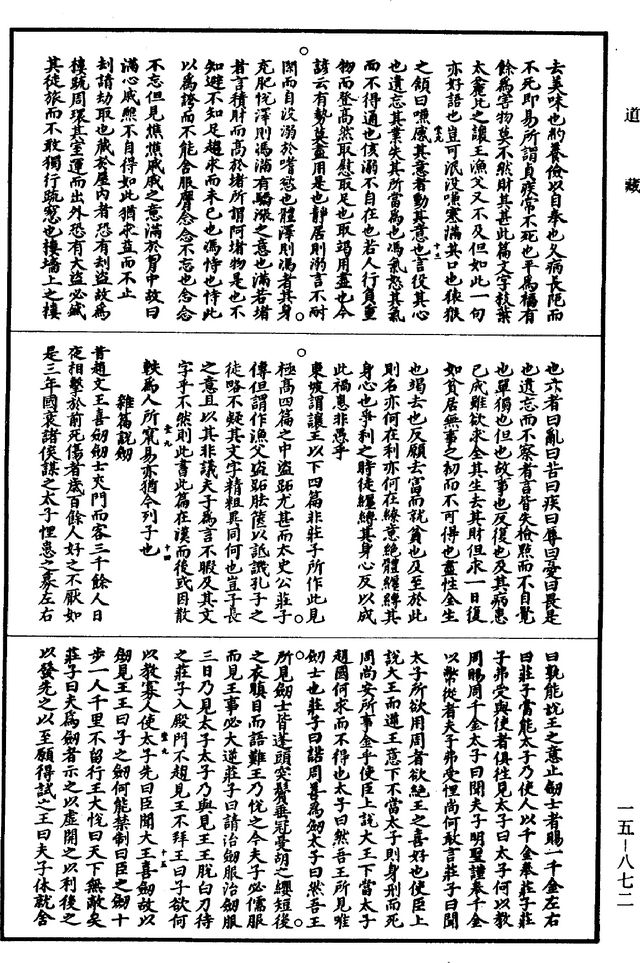 道藏
去美味也約養儉以自奉也久病長阨而
不死即易所謂貞疾常不死也平為福有
餘為害物莫不然財其甚此篇文字枝葉
太麤比之讓王漁父又不及但如此一句
亦好語也豈可泯沒嗛塞滿其口也猿猴
之頷曰嗛感其意者動其意也言役其心
也遺忘其業失其所當為也馮氣怒其氣
而不得通也侅溺不自在也若人行負重
物而登高然取慰取足也取竭用盡也今
諺云有勢莫盡用是也靜居則溺言不耐
閑而自沒溺於嗜慾也體澤則馮者其身
充肥悅澤則馮滿有驕漲之意也滿若堵
者言積財而高於堵所謂阿堵物是也不
知避不知足趨求而未已也馮恃也恃此
以為誇而不能舍服膺念念不忘也念念
不忘但見憔憔戚戚之意滿於胷中故曰
滿心戚熙不自得如此猶求益而不止
刦請劫取也藏於屋內者恐有刦盜故為
樓疏周環其室運而出外恐有大盜必盛
其徒旅而不敢獨行疏窻也樓墻上之樓
也六者曰亂曰苦曰疾曰辱曰憂曰畏是
也遺忘而不察者言皆失檢照而不自覺
也單獨也但也故事也反復也及其病患
已成雖欲求全其生去其財但求一日復
如貧居無事之初而不可得也盡性全生
也竭去也反願去富而就貧也及至於此
則名亦何在利亦何在繚意絕體纏縛其
身心也爭利之時徒纏縛其身心反以成
此禍患非愚乎
東坡謂讓王以下四篇非莊子所作此見
極高四篇之中盜跖尤甚而太史公莊子
傳但謂作漁父盜跖胠篋以詆譏孔子之
徒略不疑其文字精粗異同何也豈子長
之意且以其非議夫子為言不暇及其文
字乎不然則此書此篇在漢而後或因散
軼為人所竄易亦猶今列子也
雜篇說劒
昔趙文王喜劒劒士夾門而客三千餘人日
夜相擊於前死傷者歲百餘人好之不厭如
是三年國衰諸侯謀之太子悝患之募左右
曰孰能說王之意止劒士者賜一千金左右
曰莊子當能太子乃使人以千金奉莊子莊
子弗受與使者俱往見太子曰太子何以教
周賜周千金太子曰聞夫子明聖謹奉千金
以幣從者夫子弗受悝尚何敢言莊子曰聞
太子所欲用周者欲絕王之喜好也使臣上
說大王而逆王意下不當太子則身刑而死
周尚安所事金乎使臣上說大王下當太子
趙國何求而不得也太子曰然吾王所見唯
劒士也莊子曰諾周善為劒太子曰然吾王
所見劒士皆蓬頭突鬢垂冠曼胡之纓短後
之衣瞋目而語難王乃悅之今夫子必儒服
而見王事必大逆莊子曰請治劒服治劒服
三日乃見太子太子乃與見王王脫白刃待
之莊子入殿門不趨見王不拜王曰子欲何
以教寡人使太子先曰臣聞大王喜劒故以
劒見王王曰子之劒何能禁制曰臣之劒十
步一人千里不留行王大悅曰天下無敵矣
莊子曰夫為劒者示之以虛開之以利後之
以發先之以至願得試之王曰夫子休就舍
一五—八七二